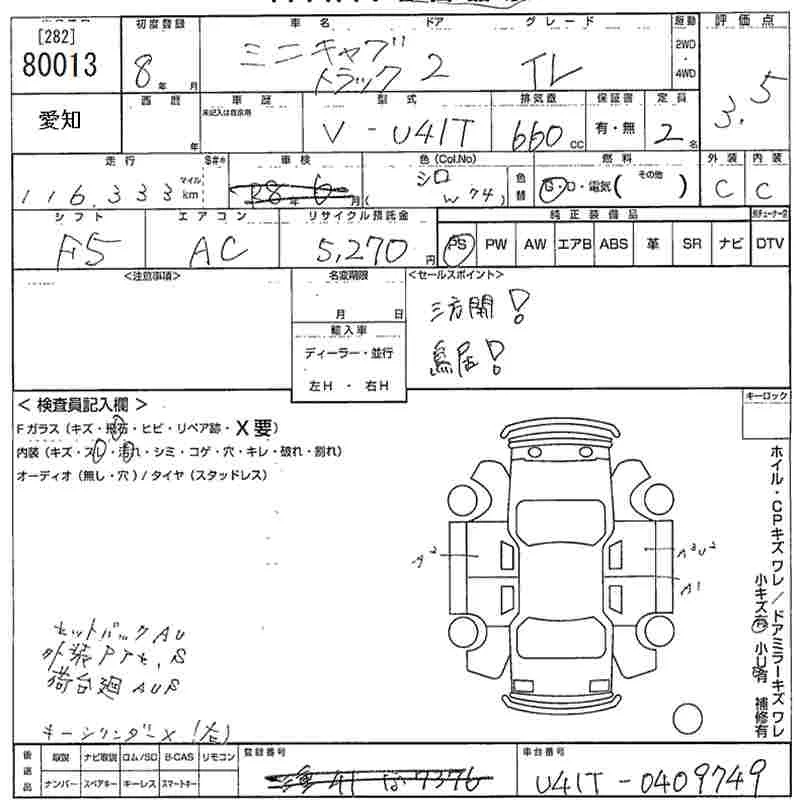 初度登録 車名 ドア グレード 駆動 評価点
[282]
80013
8年 月
ミニキャブ
トラック 2
2WD
・
4WD
3.5
愛知
西暦 車歴 型式 排気量 保証書 定員
未記入は自家用
年
V-U41T
660cc
有・無
2名
走行 車検 色(Col.No) 燃料 外装 内装
116,333
マイル
km
R8年6月(
シロ
W74)
色替
G・D・電気( その他 )
C C
シフト エアコン リサイクル預託金 純正装備品
F5 AC 5,270円
PS PW AW エアB ABS 革 SR ナビ DTV
<注意事項> 名変期限 <セールスポイント>
月 日
三方開!
鳥居!
輸入車
ディーラー・並行
左H ・ 右H
<検査員記入欄>
キーロック
Fガラス(キズ・飛石・ヒビ・リペア跡・X要)
内装(キズ・スレ・汚れ・シミ・コゲ・穴・キレ・破れ・割れ)
オーディオ(無し・穴)/タイヤ(スタッドレス)
ホイル・CPキズ ワレ/ドアミラーキズ ワレ
小キズ有 小U有 補修有
A2
A3U2
A1
セットバックAU
外装PTセ、S
荷台廻AUS
キーシリンダーX(右)
後送品
取説 ナビ取説 ロム/SD B-CAS リモコン
ナンバー スペアキー キーレス スマートキー
登録番号
41 7376
車台番号
U41T-0409749